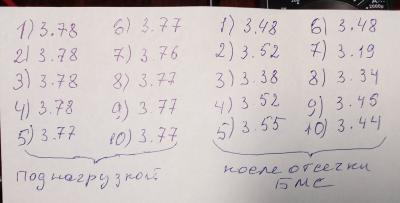 1) 3.78 6) 3.77
2) 3.78 7) 3.76
3) 3.78 8) 3.77
4) 3.78 9) 3.77
5) 3.77 10) 3.77
под нагрузкой
1) 3.48 6) 3.48
2) 3.52 7) 3.19
3) 3.38 8) 3.34
4) 3.52 9) 3.45
5) 3.55 10) 3.44
после отсечки
БМС